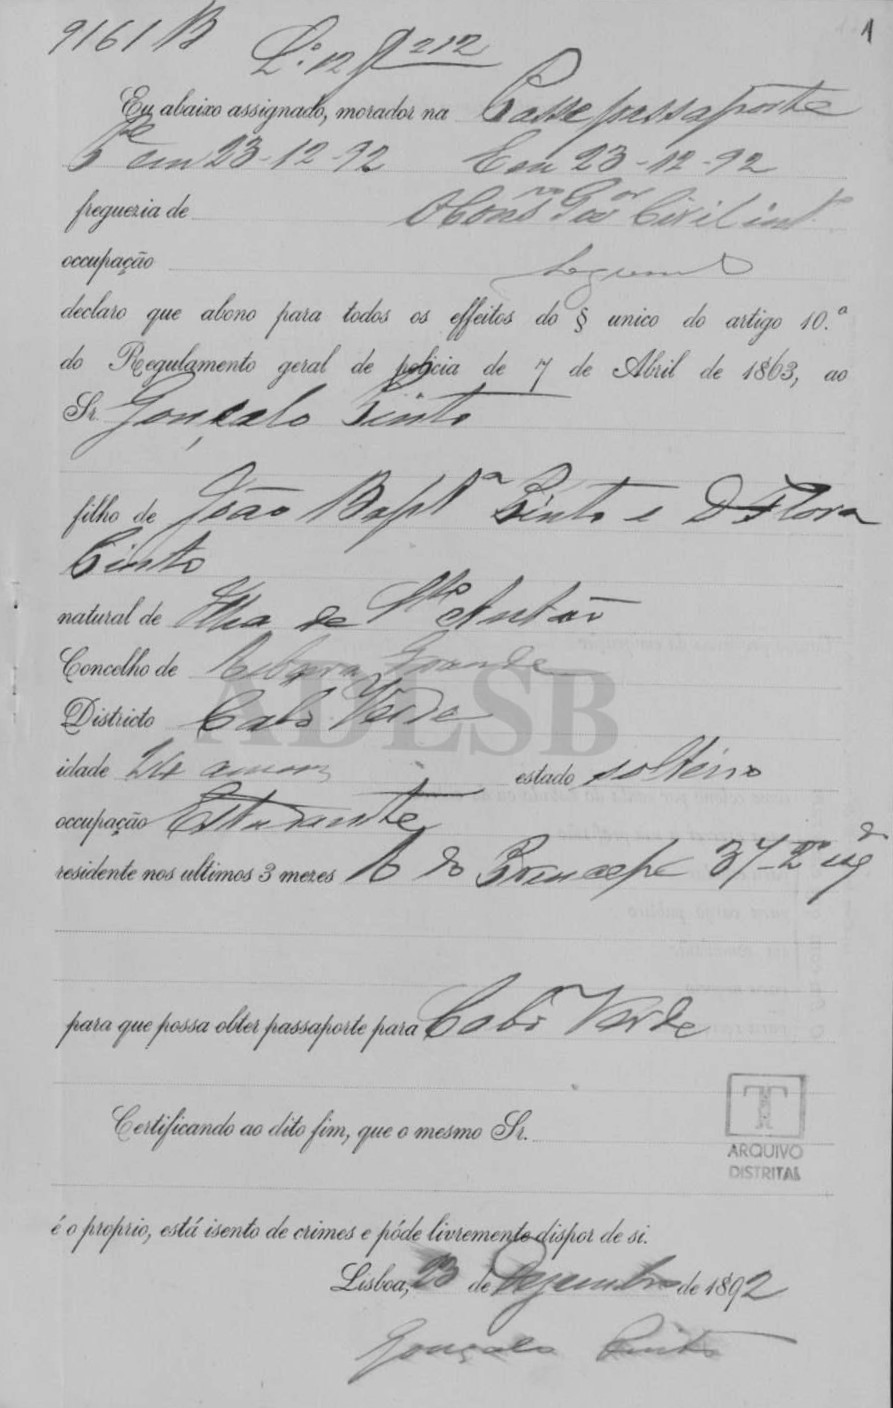 9161 B
1
L.º 12 f 212
Eu abaixo assignado, morador na Passe passaporte
P.e em 23-12-92 Em 23-12-92
freguezia de O Cons.ro Gov.or Civil int.
occupação
declaro que abono para todos os effeitos do § unico do artigo 10.º
do Regulamento geral de policia de 7 de Abril de 1863, ao
Sr. Gonçalo Pinto
filho de João Bapt.a Pinto e D Flora
Pinto
natural de Ilha de S.to Antão
Concelho de Ribeira Grande
Districto Cabo Verde
idade 24 annos estado solteiro
occupação Estudante
residente nos ultimos 3 mezes R do Principe 37-2.º
para que possa obter passaporte para Cabo Verde
Certificando ao dito fim, que o mesmo Sr.
T
ARQUIVO
DISTRITAL
é o proprio, está isento de crimes e póde livremente dispor de si.
Lisboa, 23 de Dezembro de 1892
Gonçalo Pinto
ADLSB